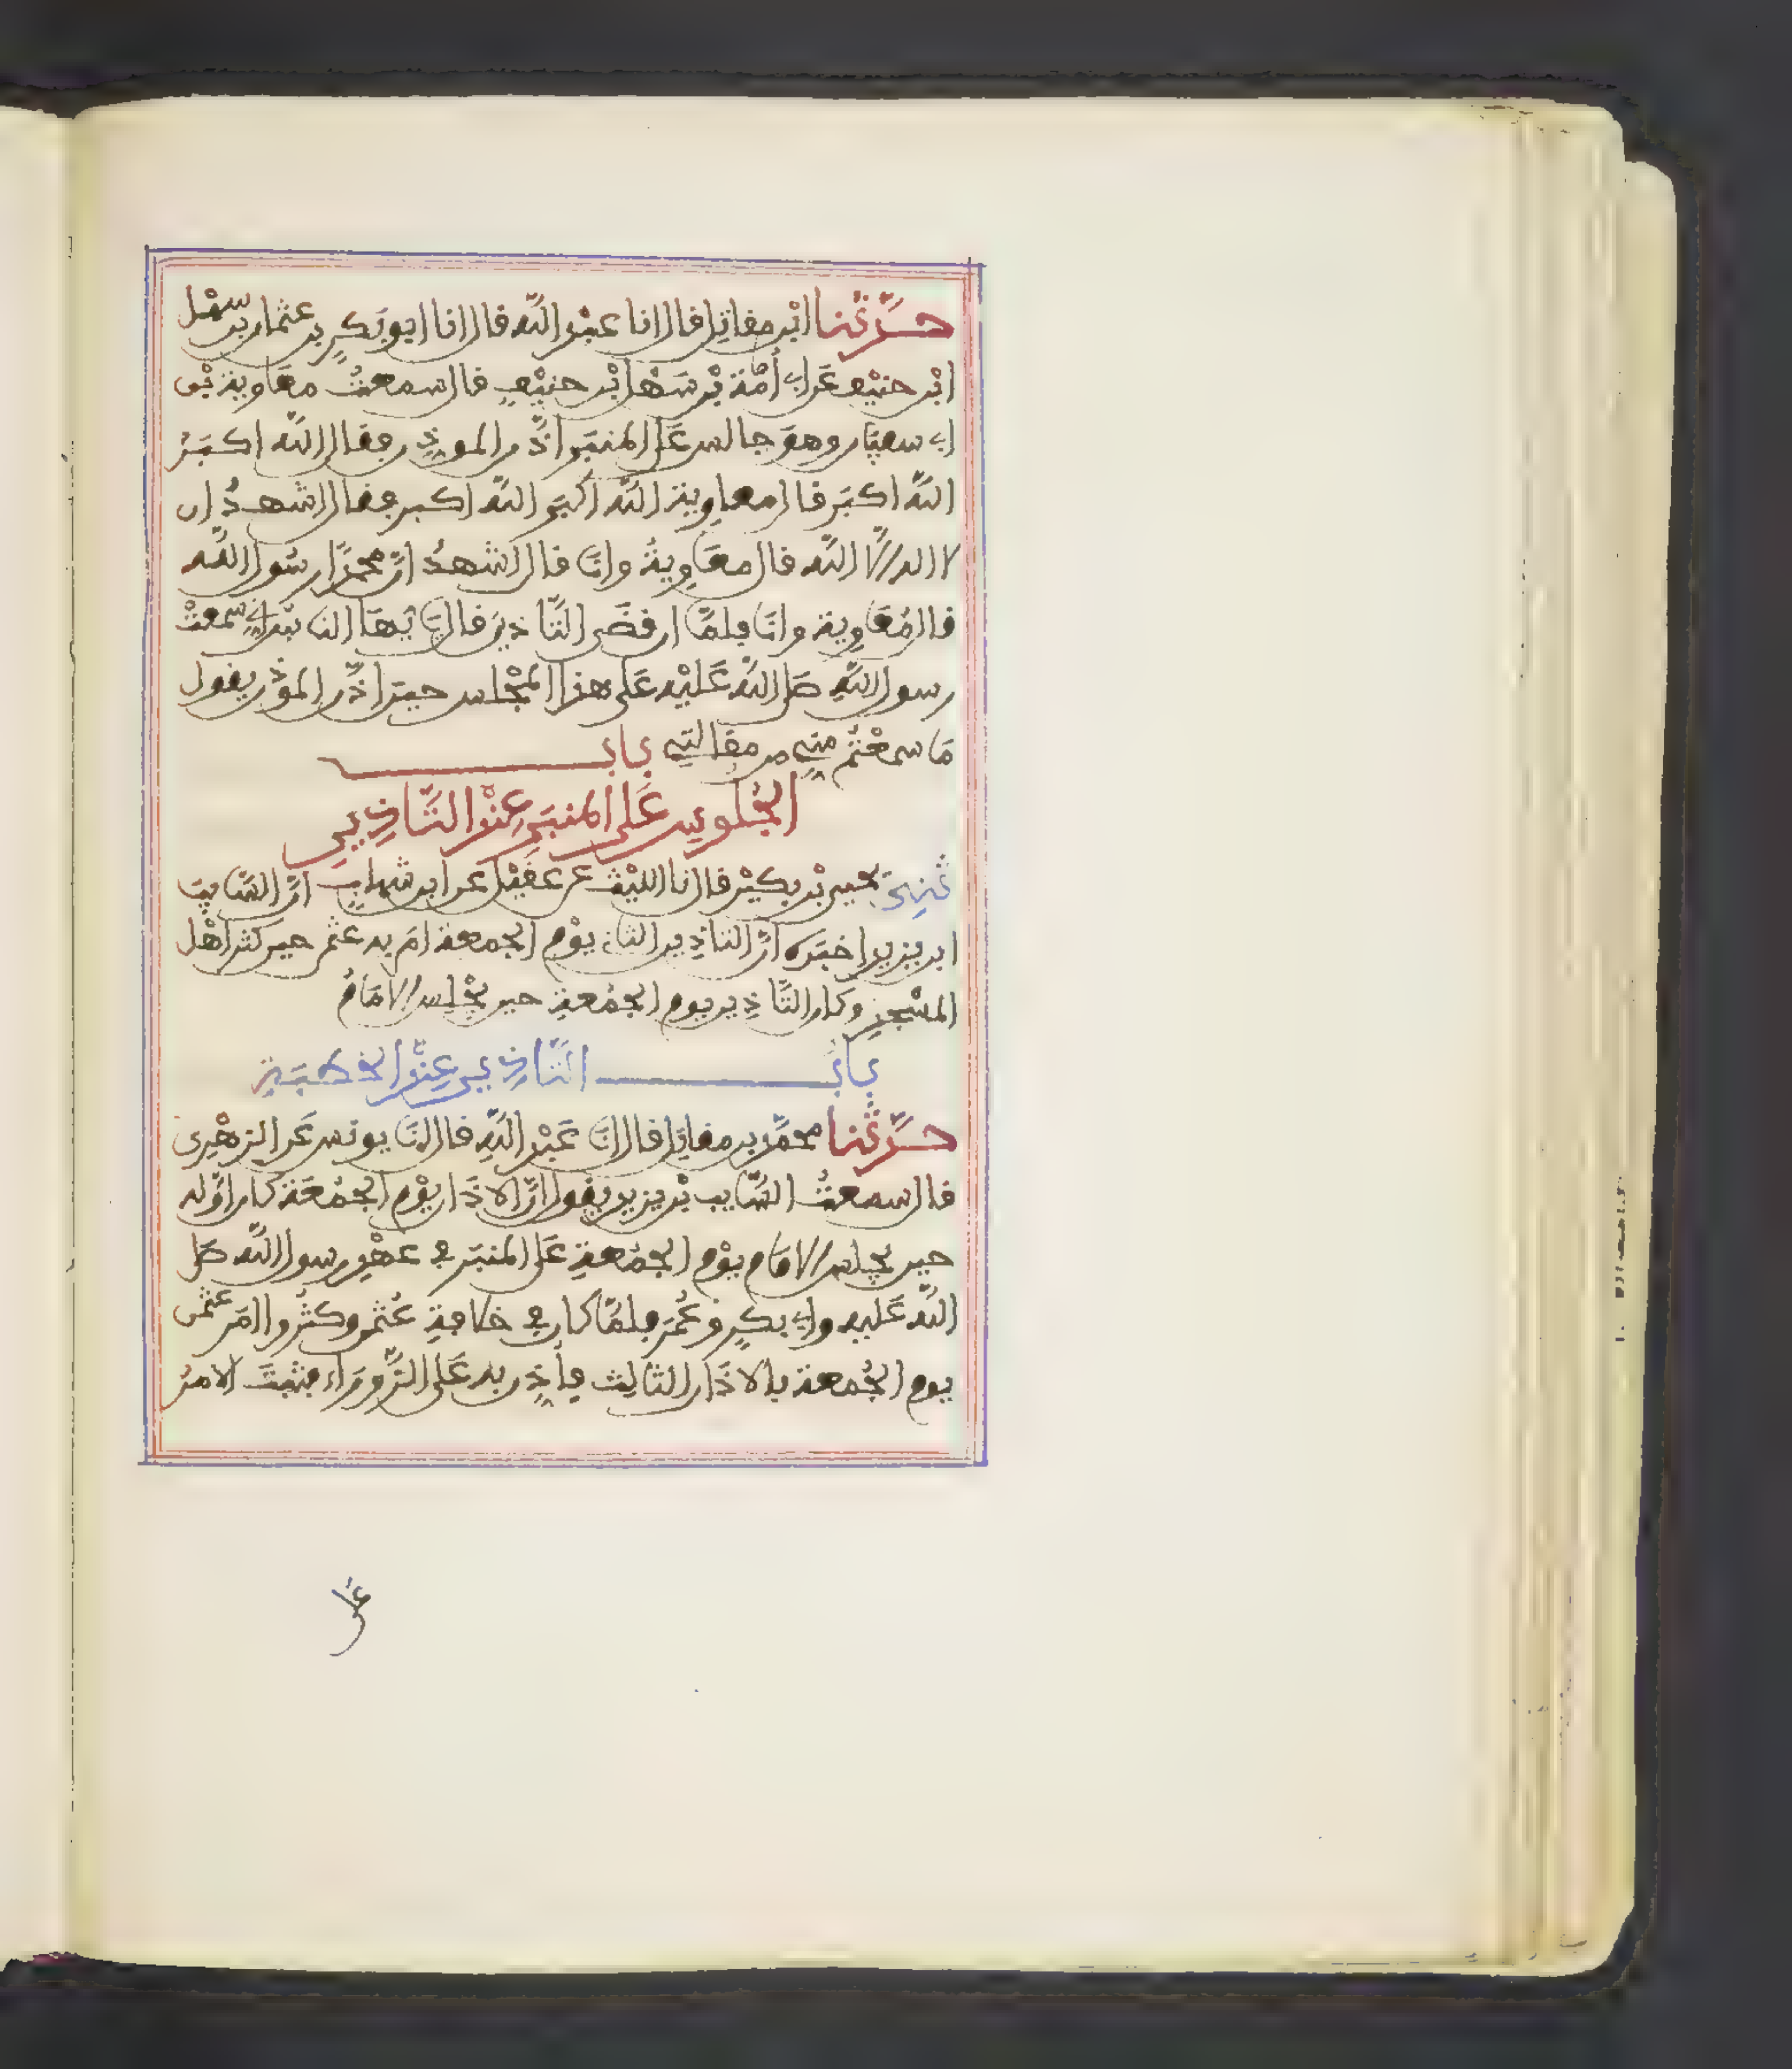 حدثنا ابن مقاتل قال انا عبد الله قال انا ابو بكر بن عثمان بن سهل
ابن حنيف عن ابي أمامة بن سهل ابن حنيف قال سمعت معاوية بن
ابي سفيان وهو جالس على المنبر اذن الموذن فقال الله اكبر
الله اكبر قال معاوية الله اكبر الله اكبر فقال اشهد ان
لا اله الا الله قال معاوية وانا قال اشهد ان محمدا رسول الله
قال معاوية وانا فلما ان قضى التاذين قال يا يها الناس اني سمعت
رسول الله صلى الله عليه على هذا المجلس حين اذن الموذن يقول
ما سمعتم مني من مقالتي باب
الجلوس على المنبر عند التاذين
ثني يحيى بن بكير قال انا الليث عن عقيل عن ابن شهاب ان السايب
ابن يزيد اخبره ان التاذين الثاني يوم الجمعة امر به عثمن حين كثر اهل
المسجد وكان التاذين يوم الجمعة حين يجلس الامام
باب التاذين عند الخطبة
حدثنا محمد بن مقاتل قال انا عبد الله قال انا يونس عن الزهري
قال سمعت السايب بن يزيد يقول ان الاذان يوم الجمعة كان اوله
حين يجلس الامام يوم الجمعة على المنبر في عهد رسول الله صلى
الله عليه وابي بكر وعمر فلما كان في خلافة عثمن وكثروا امر عثمن
يوم الجمعة بالاذان الثالث فأذن به على الزوراء فثبت الامر
على